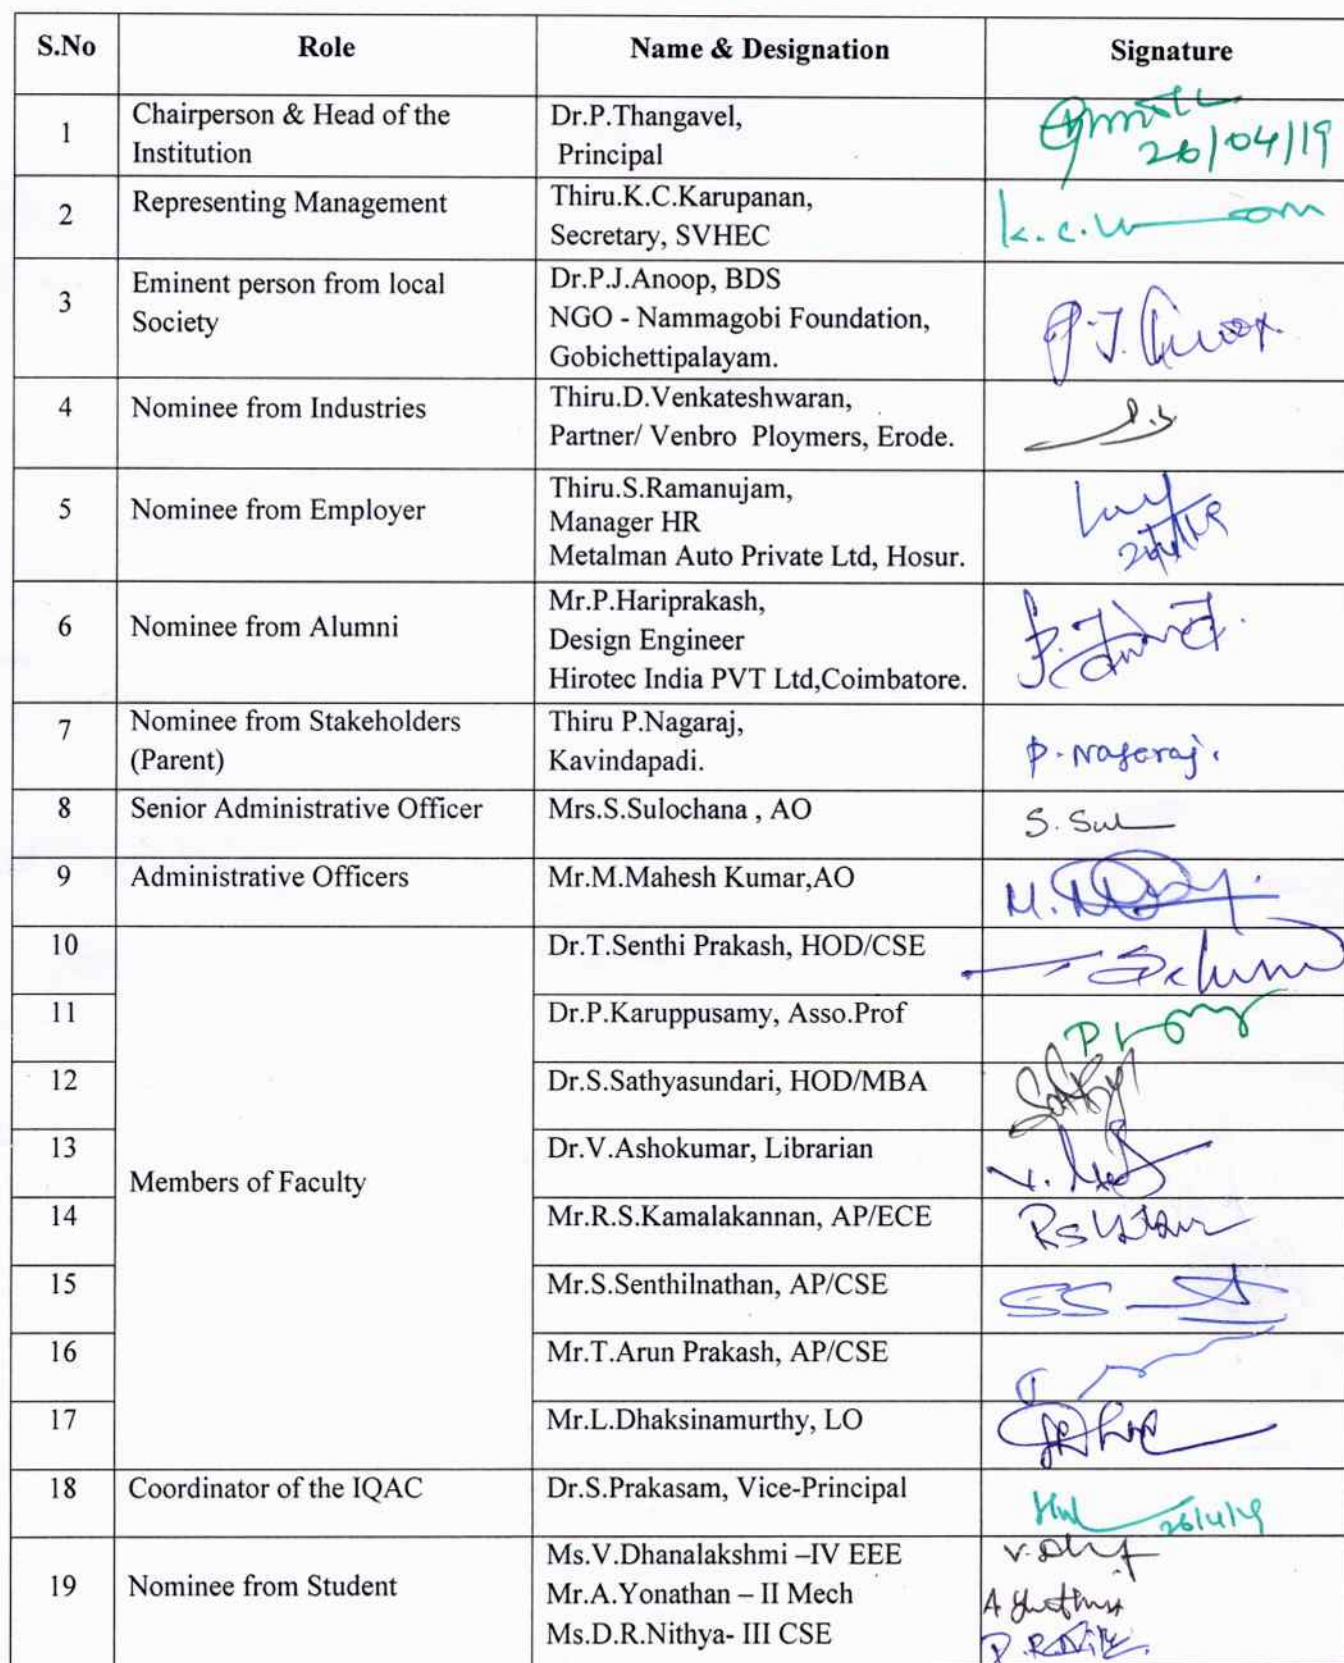 S.No Role Name & Designation Signature
1 Chairperson & Head of the Institution Dr.P.Thangavel, Principal 26/04/19
2 Representing Management Thiru.K.C.Karupanan, Secretary, SVHEC K.C.
3 Eminent person from local Society Dr.P.J.Anoop, BDS NGO - Nammagobi Foundation, Gobichettipalayam. P.J. Anoop.
4 Nominee from Industries Thiru.D.Venkateshwaran, Partner/ Venbro Ploymers, Erode.
5 Nominee from Employer Thiru.S.Ramanujam, Manager HR Metalman Auto Private Ltd, Hosur.
6 Nominee from Alumni Mr.P.Hariprakash, Design Engineer Hirotec India PVT Ltd,Coimbatore.
7 Nominee from Stakeholders (Parent) Thiru P.Nagaraj, Kavindapadi. P. Nagaraj.
8 Senior Administrative Officer Mrs.S.Sulochana , AO S. Sul
9 Administrative Officers Mr.M.Mahesh Kumar,AO M.
10 Dr.T.Senthi Prakash, HOD/CSE
11 Dr.P.Karuppusamy, Asso.Prof P
12 Dr.S.Sathyasundari, HOD/MBA Sathy
13 Dr.V.Ashokumar, Librarian V.
Members of Faculty
14 Mr.R.S.Kamalakannan, AP/ECE RS
15 Mr.S.Senthilnathan, AP/CSE SS
16 Mr.T.Arun Prakash, AP/CSE
17 Mr.L.Dhaksinamurthy, LO
18 Coordinator of the IQAC Dr.S.Prakasam, Vice-Principal 26/4/19
19 Nominee from Student Ms.V.Dhanalakshmi –IV EEE V.
Mr.A.Yonathan – II Mech A
Ms.D.R.Nithya- III CSE D.R.